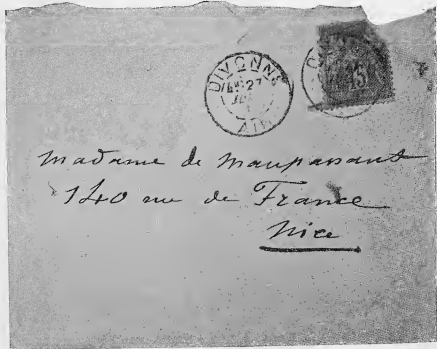 DIVONNE
27
AIN
15
Madame de Maupassant
140 rue de France
Nice